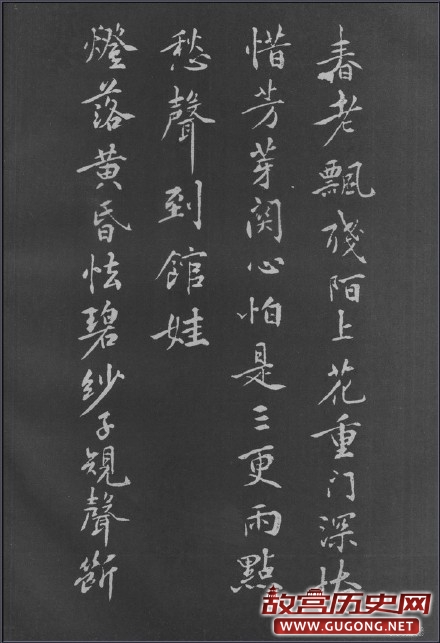 春老飄殘陌上花重门深
惜芳芽関心怕是三更雨點
愁聲到館娃
燈落黄昏怯碧紗子規聲断
故宫历史网
GUGONG.NET